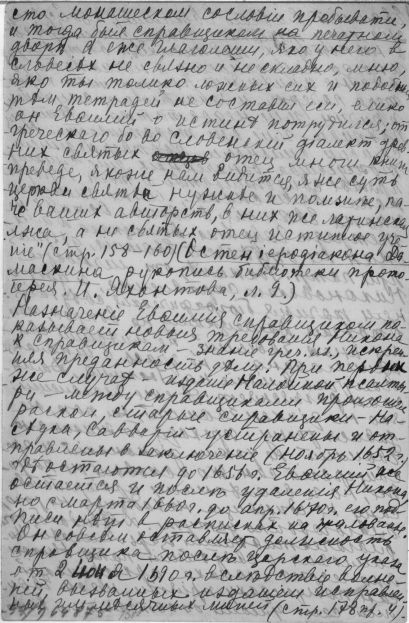 сто монашеском сословіи пробывати,
и тогда быв справщиком на печатном
дворѣ. А еже глаголеши, яко у него в
словесѣх не связно и не складно, мню,
яко ты толико ложных сих и
тетрадей не составил еси, елико
он Евѳимий о истинѣ потрудился; от
греческаго бо во словенский діалект
них святых отец многи книги
преведе, якоже нам видится, яже суть
церкви святѣй нужнѣе и полезнѣе, па-
че ваших авторств, в них же латинская
лжа, а не святых отец истинное уче-
ніе" (стр. 158-160) (Остен іеродіакона Да-
маскина рукопись библіотеки прото-
іерея И. Яхонтова, л. 9.)
Назначение Евѳимия справщиком по-
казывает новыя требования Никона
к справщикам - знание греч. яз., искрен-
няя преданность делу. При первом
же случае - издание Псалты-
ри - между справщиками произошел
раскол, старые справщики - На-
седка, Савватий устранены и от-
правлены в заключение (Ноябрь 1652 г.
до 1656 г. Евѳимий же
остается и после удаления Никона
но с марта 1660 г. до апр. 1670 г. его под-
писи нет в расписках на жалованье.
Он совсем оставляет должность
справщика после царского указа
1690 г. вследствие волне-
ний вызванных изданием исправлен-
ных им месячных миней (стр. 178 пр. 4).